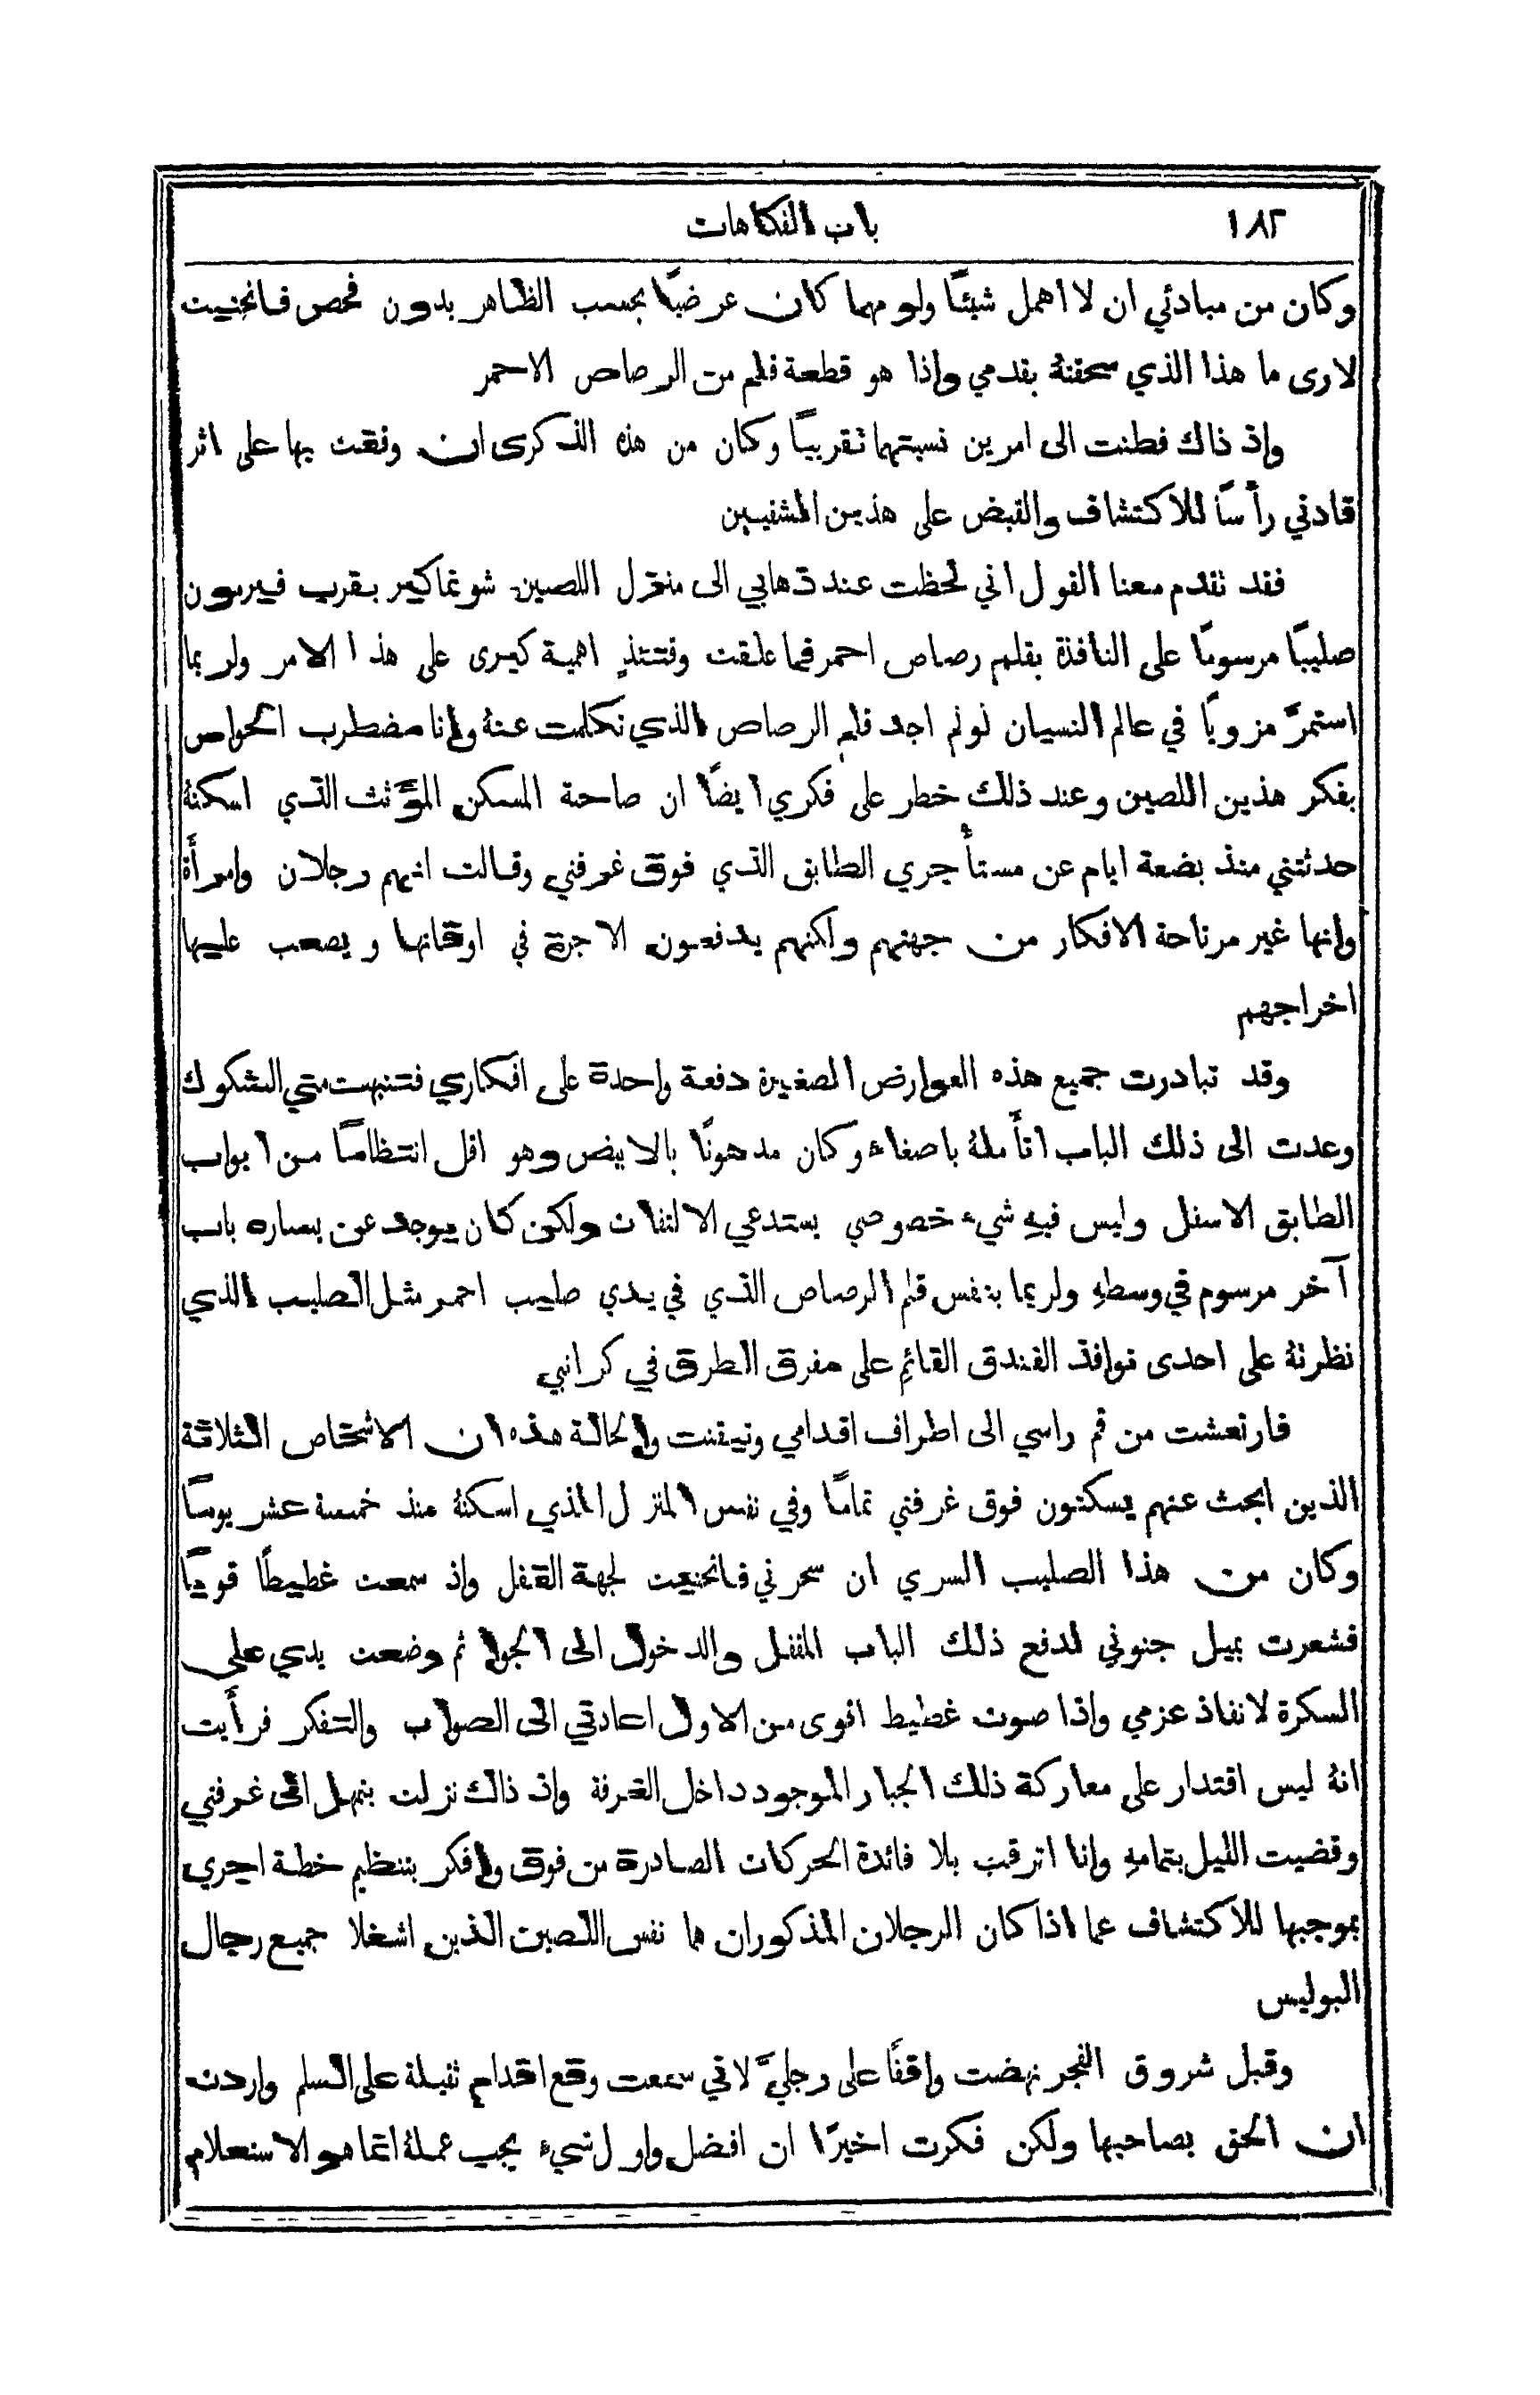 ١٨٢ باب الفكاهات
وكان من مبادئي ان لا اهمل شيئًا ولو مهما كان عرضيًا بحسب الظاهر بدون فحص فانحنيت
لارى ما هذا الذي سحقتهُ بقدمي واذا هو قطعة قلم من الرصاص الاحمر
واذ ذاك فطنت الى امرين نسيتهما تقريبًا وكان من هذه الذكرى ان وقعت بها على اثر
قادني رأسًا للاكتشاف والقبض على هذين المشقيين
فقد تقدم معنا القول اني لحظت عند ذهابي الى منزل اللصين شونماكير بقرب فيرمون
صليبًا مرسومًا على النافذة بقلم رصاص احمر فما علقت وقتئذٍ اهمية كبرى على هذا الامر ولربما
استمرَّ مزويًا في عالم النسيان لو لم اجد قلم الرصاص الذي تكلمت عنهُ وانا مضطرب الحواس
بفكر هذين اللصين وعند ذلك خطر على فكري ايضًا ان صاحبة المسكن المؤَثث الذي اسكنهُ
حدثتني منذ بضعة ايام عن مستأجري الطابق الذي فوق غرفتي وقالت انهم رجلان وامرأَة
وانها غير مرتاحة الافكار من جهتهم ولكنهم يدفعون الاجرة في اوقاتها ويصعب عليها
اخراجهم
وقد تبادرت جميع هذه العوارض الصغيرة دفعة واحدة على افكاري فتنبهت مني الشكوك
وعدت الى ذلك الباب اتأَملهُ باصغاء وكان مدهونًا بالابيض وهو اقل انتظامًا من ابواب
الطابق الاسفل وليس فيهِ شيء خصوصي يستدعي الالتفات ولكن كان يوجد عن يساره باب
آخر مرسوم في وسطهِ ولربما بنفس قلم الرصاص الذي في يدي صليب احمر مثل الصليب الذي
نظرتهُ على احدى نوافذ الفندق القائم على مفرق الطرق في كرانبي
فارتعشت من قم راسي الى اطراف اقدامي وتيقنت والحالة هذه ان الاشخاص الثلاثة
الذين ابحث عنهم يسكنون فوق غرفتي تمامًا وفي نفس المنزل الذي اسكنهُ منذ خمسة عشر يومًا
وكان من هذا الصليب السري ان سحرني فانحنيت لجهة القفل واذ سمعت غطيطًا قويًا
فشعرت بميل جنوني لدفع ذلك الباب المقفل والدخول الى الجوا ثم وضعت يدي على
السكرة لانفاذ عزمي واذا صوت غطيط اقوى من الاول اعادني الى الصواب والتفكر فرأَيت
انهُ ليس اقتدار على معاركة ذلك الجبار الموجود داخل الغرفة واذ ذاك نزلت بتمهل الى غرفتي
وقضيت الليل بتمامهِ وانا اترقب بلا فائدة الحركات الصادرة من فوق وافكر بتنظيم خطة اجري
بموجبها للاكتشاف عما اذا كان الرجلان المذكوران هما نفس اللصين الذين اشغلا جميع رجال
البوليس
وقبل شروق الفجر نهضت واقفًا على رجليَّ لاني سمعت وقع اقدام ثقيلة على السلم واردت
ان الحق بصاحبها ولكن فكرت اخيرًا ان افضل واول شيء يجب عملهُ انما هو الاستعلام